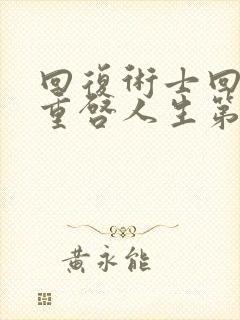 回復術士回
重啓人生第
黃永能